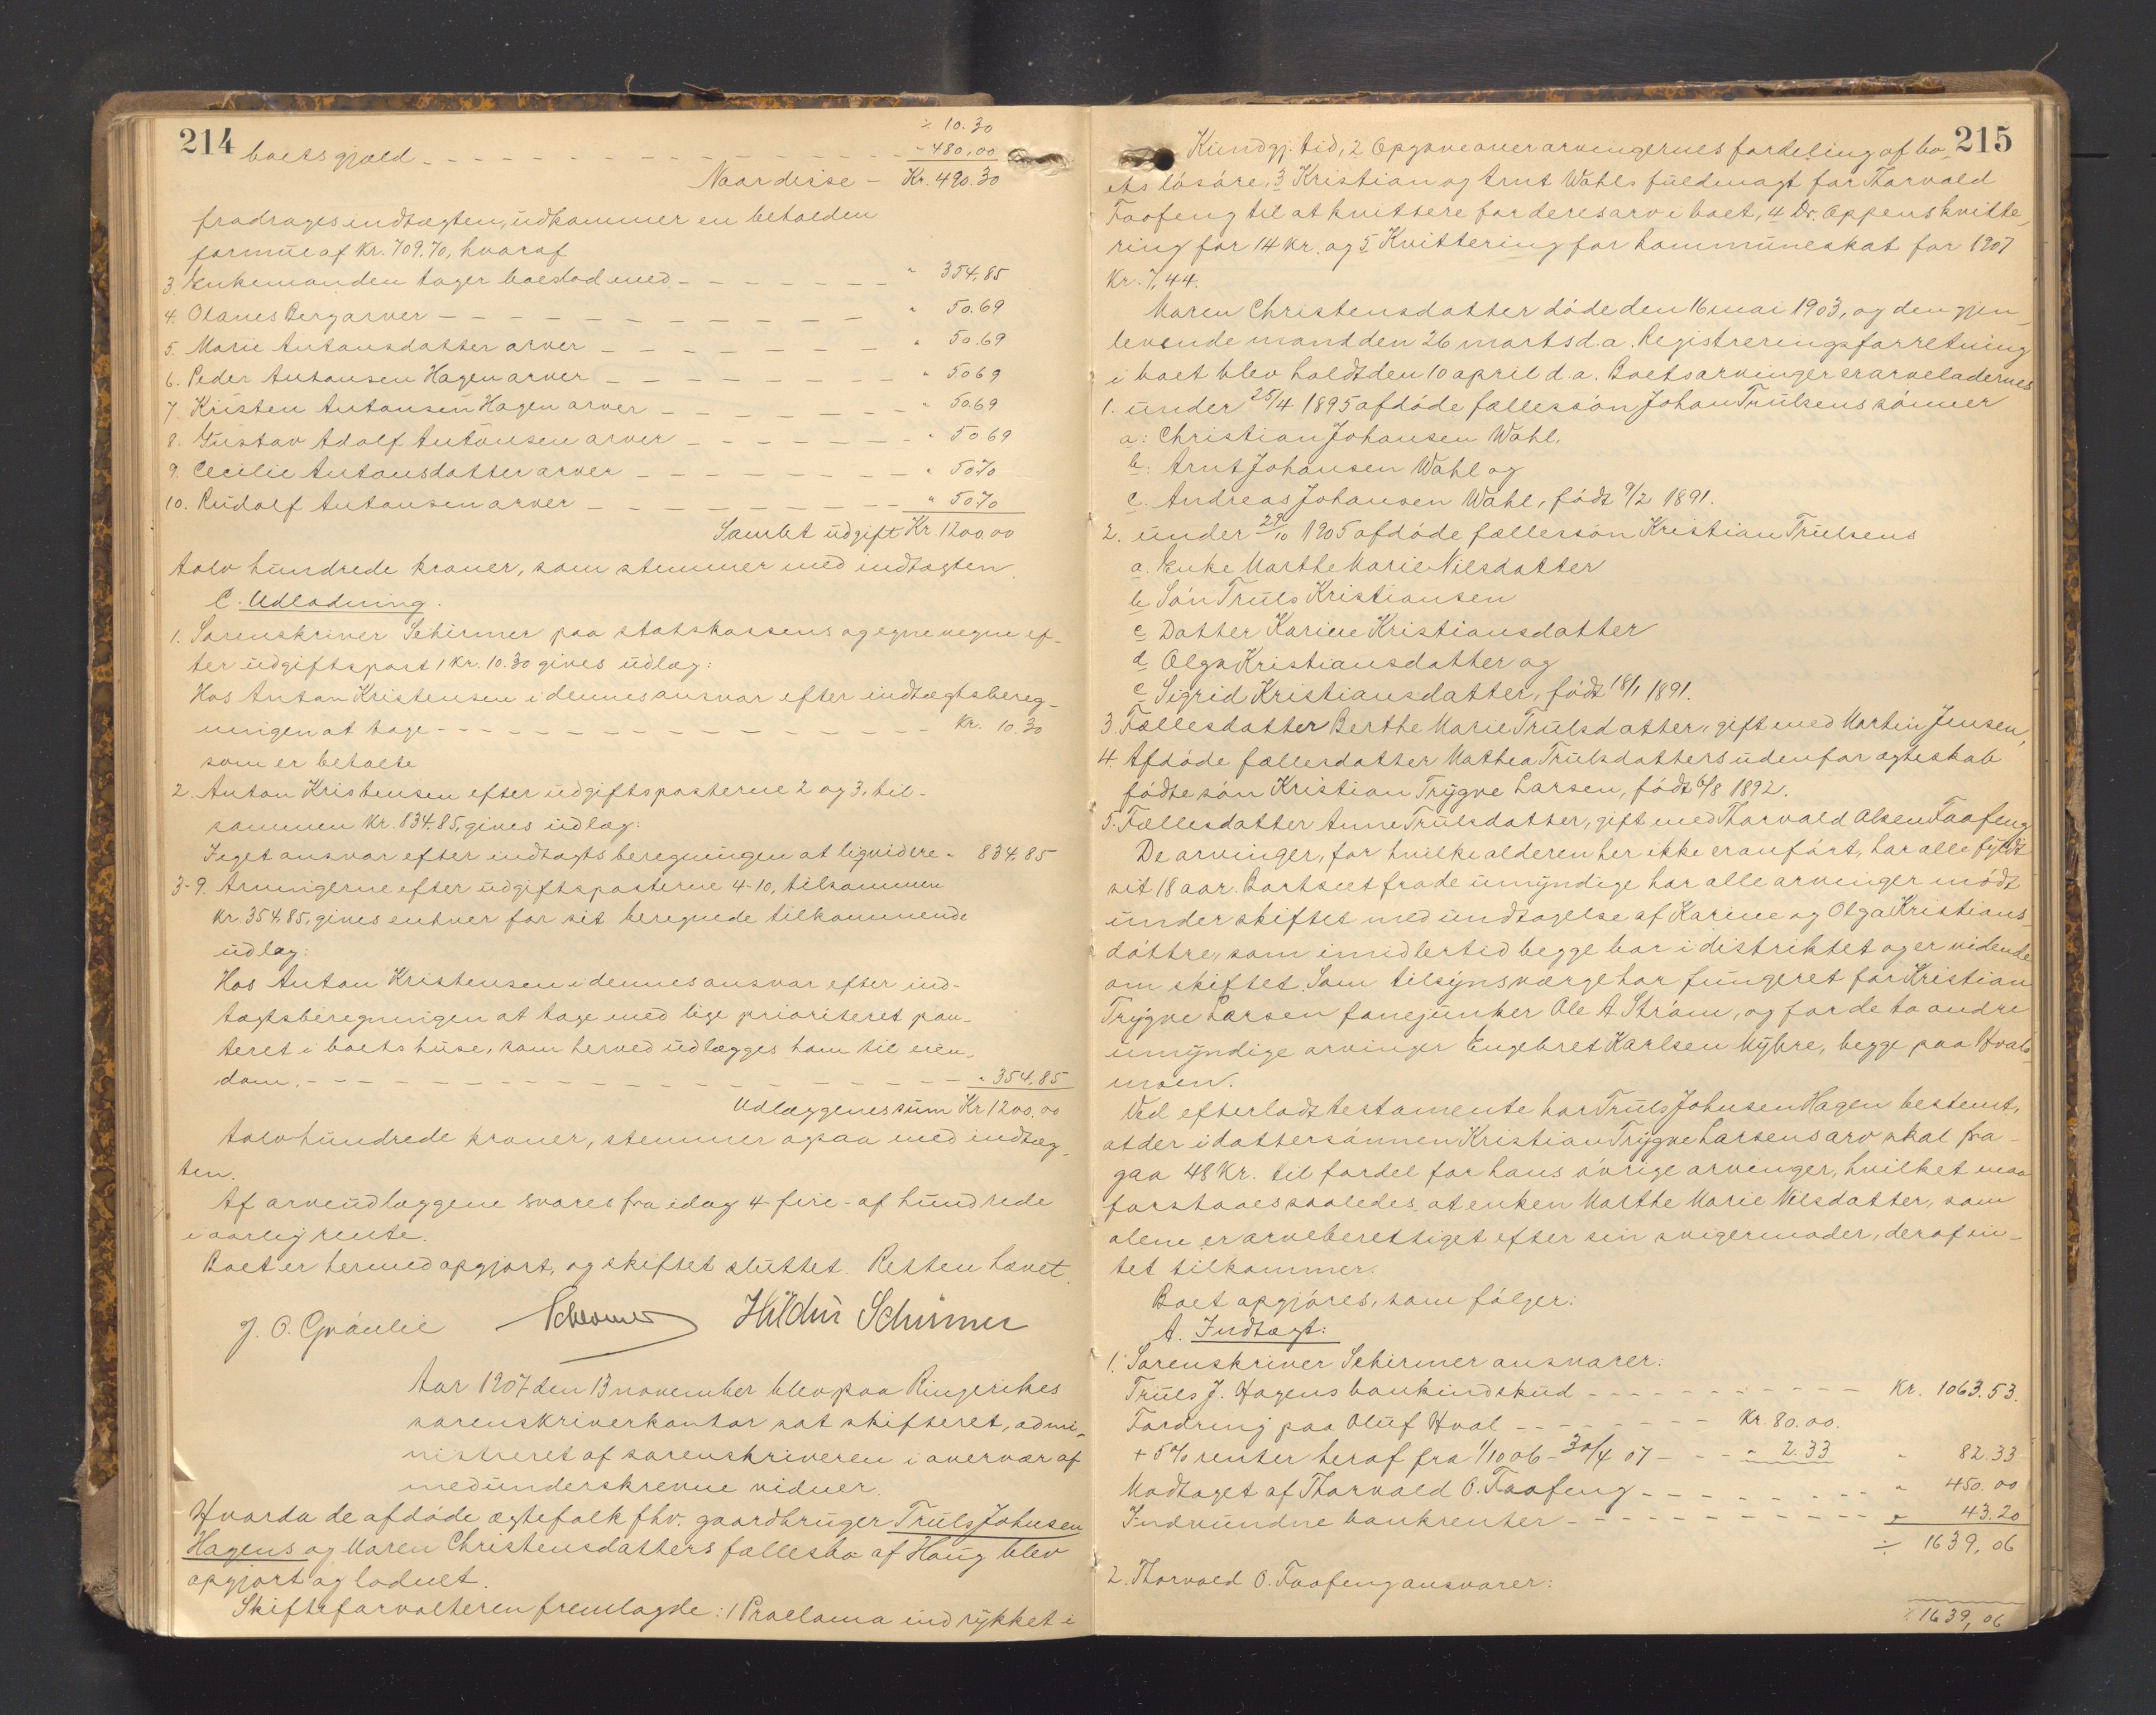 214
÷ 10.30
boets gjæld - - - - - - - - - - - - - - - - - 480,00
Naar disse - Kr. 490.30
fradrages indtægten, udkommer en beholden
formue af Kr. 709.70, hvoraf
3. Enkemanden tager boeslod med - - - - - - - " 354.85
4. Olaves Berg arver - - - - - - - - - - - - " 50.69
5. Marie Antonsdatter arver - - - - - - - - " 50.69
6. Peder Antonsen Hagen arver - - - - - - - - " 50 69
7. Kristen Antonsen Hagen arver - - - - - - - " 50.69
8. Gustav Adolf Antonsen arver - - - - - - - " 50.69
9. Cecilie Antonsdatter arver - - - - - - - - " 50 70
10. Rudolf Antonsen arver - - - - - - - - - - " 50 70
Samlet udgift Kr. 1200.00
tolv hundrede kroner, som stemmer med indtægten.
C. Udlodning.
1. Sorenskriver Schirmer paa statskassens og egne vegne ef-
ter udgiftspost 1 kr. 10.30 gives udlæg:
Hos Anton Kristensen i dennes ansvar efter indtægtsbereg-
ningen at tage - - - - - - - - - - - - - - - Kr. 10.30
som er betalte
2. Anton Kristensen efter udgiftsposterne 2 og 3, til-
sammen Kr. 834.85, gives udlæg:
I eget ansvar efter indtægtsberegningen at liqvidere " 834.85
3-9. Arvingerne efter udgiftsposterne 4-10, tilsammen
Kr. 354.85, gives enhver for sit beregnede tilkommende
udlæg:
Hos Anton Kristensen i dennes ansvar efter ind-
tægtsberegningen at tage med lige prioriteret pan-
teret i boets huse, som herved udlægges ham til eien-
dom. - - - - - - - - - - - - - - - - - - - " 354.85
Udlæggenes sum Kr 1200.00
tolvhundrede kroner, stemmer ogsaa med indtæg-
ten.
Af arveudlæggene svares fra idag 4 - fire - af hundrede
i aarlig rente.
Boet er hermed opgjort, og skiftet sluttet. Retten hævet.
J. O. Gvåulie Schirmer Hildur Schirmer
Aar 1907 den 13 november blev paa Ringerikes
sorenskriverkontor sat skifteret, admi-
nistreret af sorenskriveren i overvær af
medunderskrevne vidner.
Hvorda de afdøde ægtefolk fhv. gaardbruger Truls Johnsen
Hagens og Maren Christensdatters fællesbo af Haug blev
opgjort og loduet.
Skifteforvalteren fremlagde: 1 Proclama indrykket i
215
Kundgj. tid, 2 Opgave over arvingernes fordeling af bo-
ets løsøre, 3 Kristian og Arnt Wahls fuldmagt for Thorvald
Faafeng til at kvittere for deres arv i boet, 4 Dr. Oppens kvitte-
ring for 14 kr. og 5 Kvittering for kommuneskat for 1907
Kr. 7,44.
Maren Christensdatter døde den 16 mai 1903, og den gjen-
levende mand den 26 marts d.a. Registreringsforretning
i boet blev holdt den 10 april d.a. Boets arvinger er arveladernes
1. under 25/4 1895 afdøde fællessøn Johan Trulsens sønner
a: Christian Johansen Wahl.
b: Arnt Johansen Wahl og
c. Andreas Johansen Wahl, født 9/2 1891.
2. under 29/10 1905 afdøde fællessøn Kristian Trulsens
a. Enke Marthe Marie Nilsdatter
b Søn Truls Kristiansen
c Datter Karine Kristiansdatter
d Olga Kristiansdatter og
e Sigrid Kristiansdatter, født 18/1 1891.
3 Fællesdatter Berthe Marie Trulsdatter, gift med Martin Jensen,
4 Afdøde fællesdatter Mathea Trulsdatters udenfor ægteskab
fødte søn Kristian Trygve Larsen, født 6/8 1892.
5. Fællesdatter Anne Trulsdatter, gift med Thorvald Olsen Faafeng
De arvinger, for hvilke alderen her ikke er anført, har alle fyldt
sit 18 aar. Bortseet fra de umyndige har alle arvinger mødt
under skiftet med undtagelse af Karine og Olga Kristians-
døttre, som imidlertid begge bor i distriktet og er vidende
om skiftet. Som tilsynsværge har fungeret for Kristian
Trygve Larsen fanejunker Ole A Strøm, og for de to andre
umyndige arvinger Engebret Karlsen Myhre, begge paa Hvals-
moen.
Ved efterladt testamente har Truls Johnsen Hagen bestemt,
at der i dattersønnen Kristian Trygve Larsens arv skal fra-
gaa 48 Kr. til fordel for hans øvrige arvinger, hvilket maa
forstaaes saaledes, at enken Marthe Marie Nilsdatter, som
alene er arveberettiget efter sin svigermoder, deraf in-
tet tilkommer.
Boet opgjøres, som følger:
A. Indtægt:
1. Sorenskriver Schirmer ansvarer:
Truls J. Hagens bankindskud - - - - - - - - - - - Kr. 1063.53.
Fordring paa Oluf Hval - - - - - - - Kr. 80.00.
+ 5% renter heraf fra 1/10 06 - 30/4 07 - - - " 2.33 " 82.33
Modtaget af Thorvald O. Faafeng - - - - - - - - " 450.00
Indvundne bankrenter - - - - - - - - - - - - " 43.20
÷ 1639,06
2. Thorvald O. Faafeng ansvarer:
÷ 1639,06